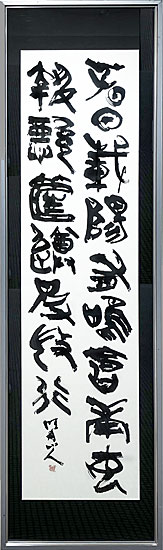 春日載陽有鳴倉庚女
執懿筐遵彼微行